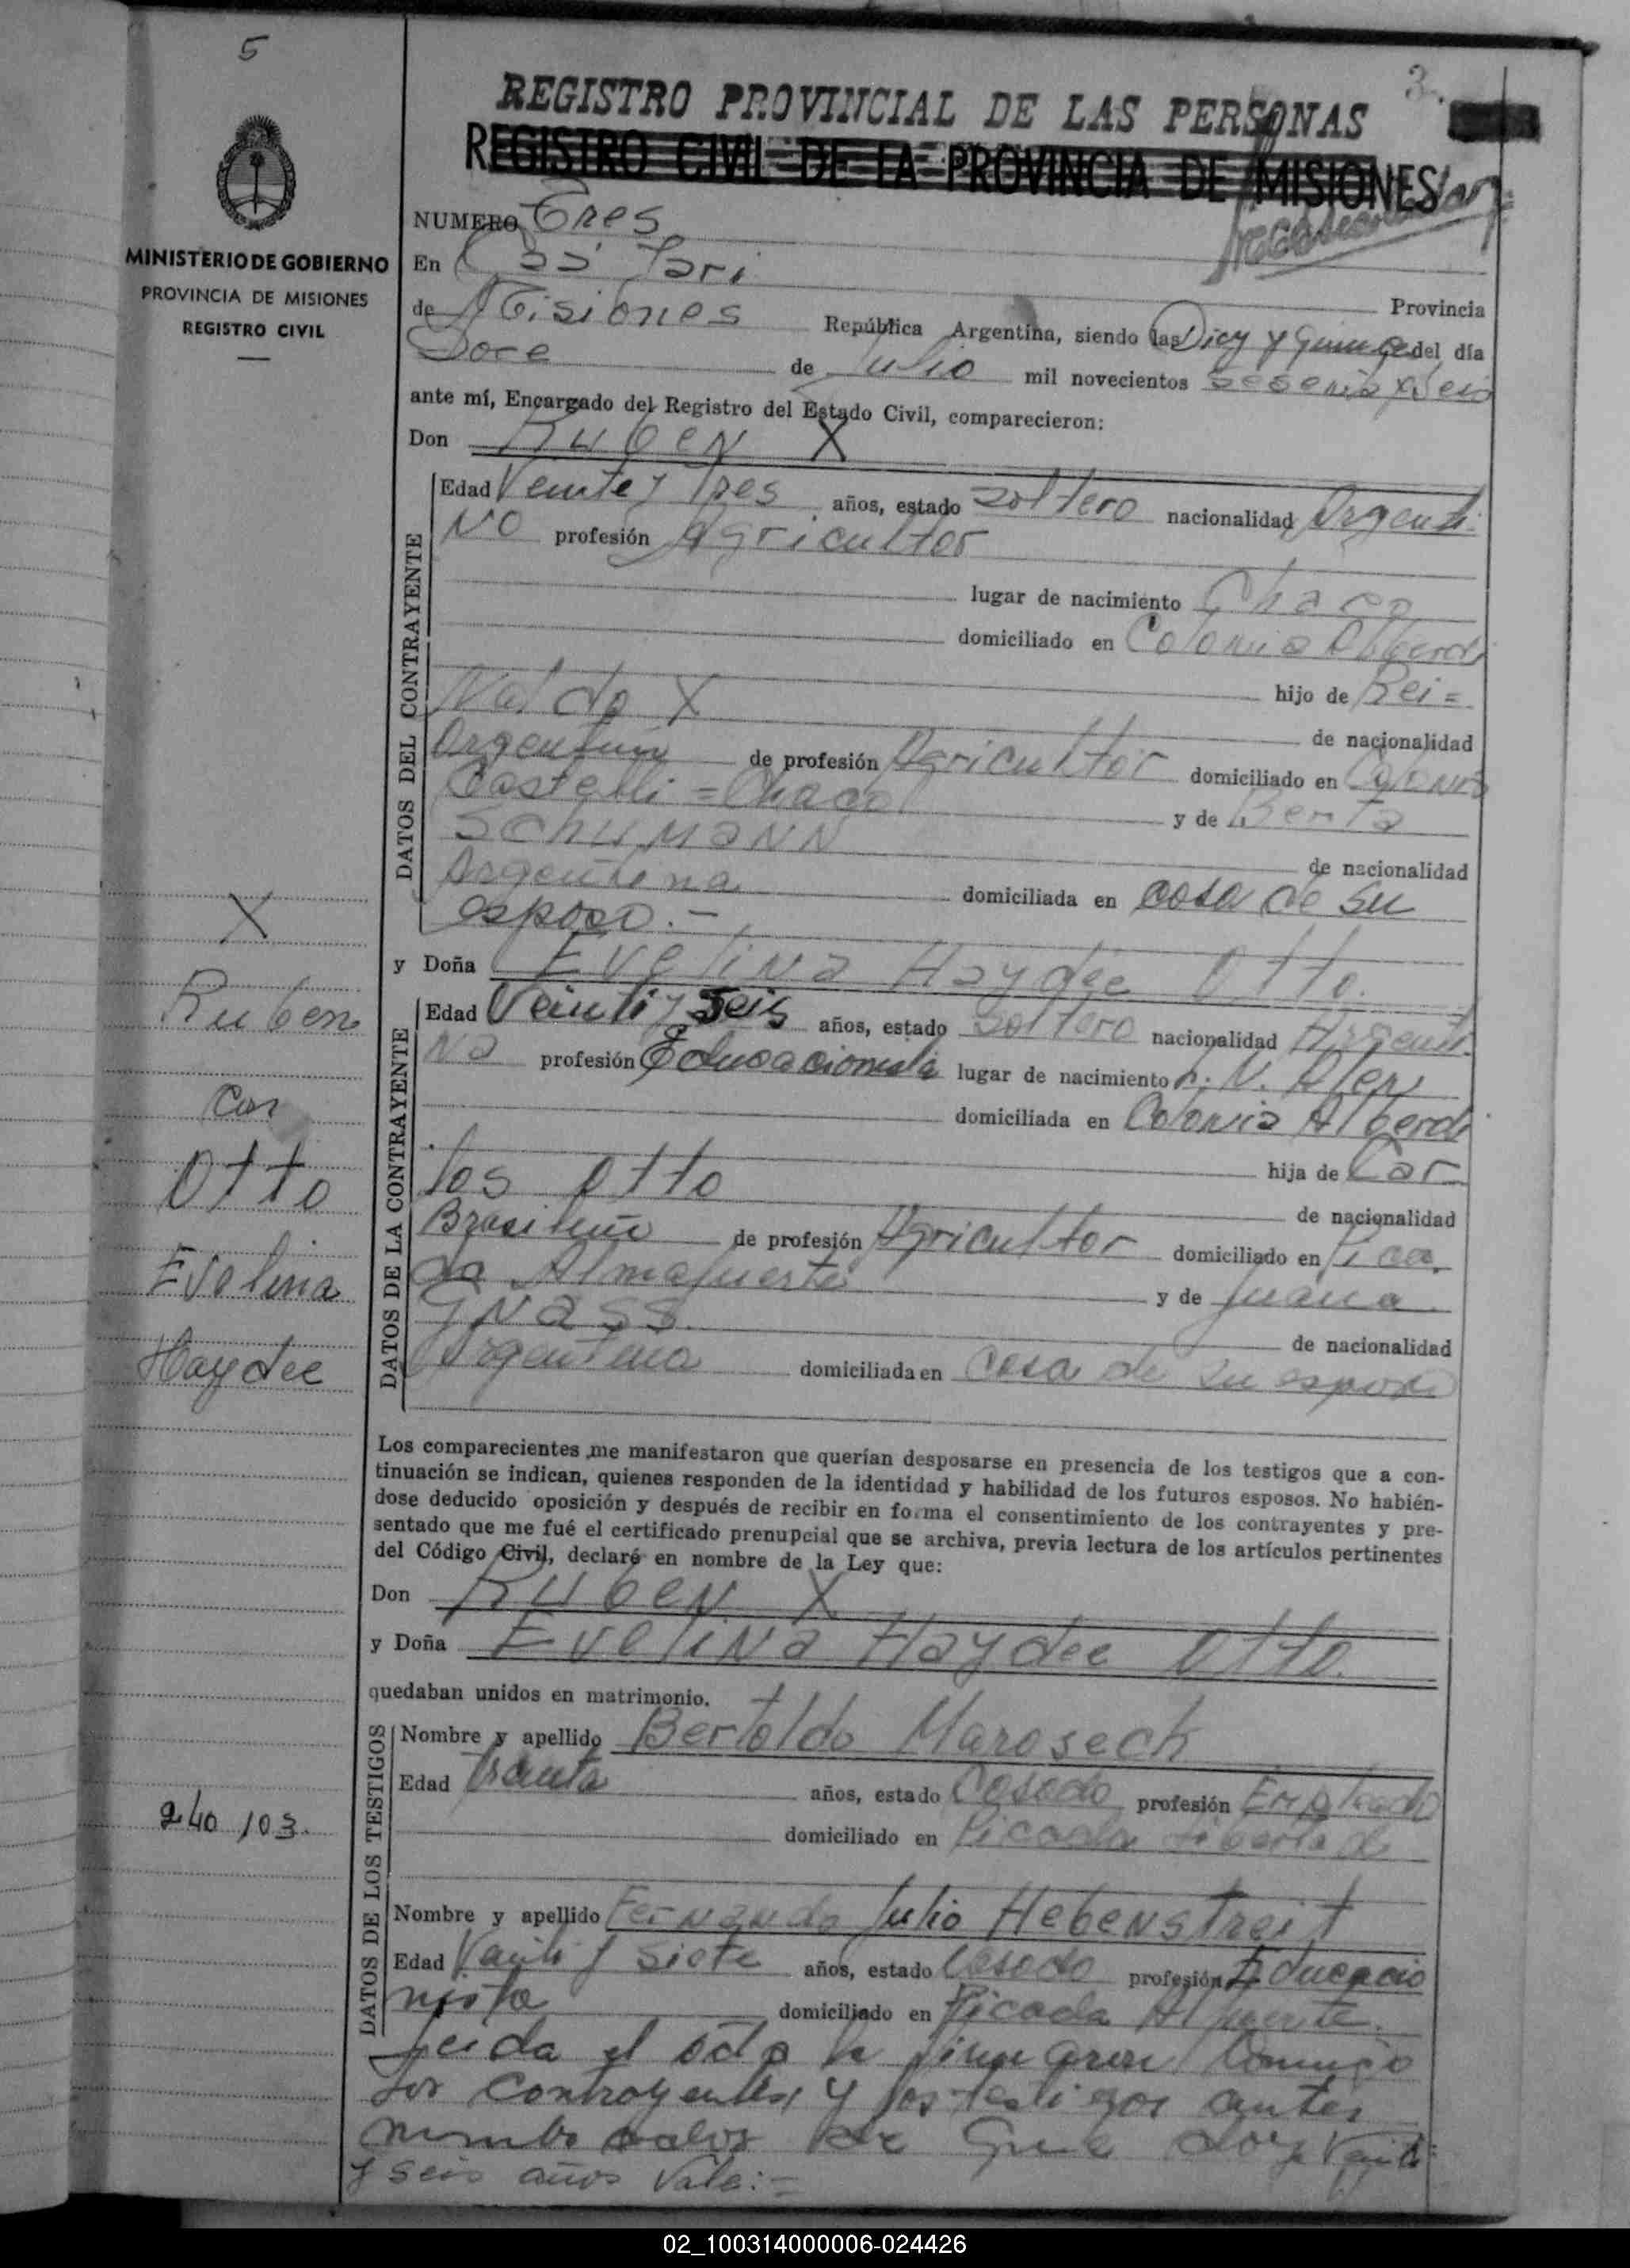 5
3.
REGISTRO PROVINCIAL DE LAS PERSONAS
REGISTRO CIVIL DE LA PROVINCIA DE MISIONES
MINISTERIO DE GOBIERNO
PROVINCIA DE MISIONES
REGISTRO CIVIL
NUMERO Tres
En Caá Yari
Provincia
de Misiones República Argentina, siendo las Diez y quince del día
Doce de Julio mil novecientos sesenta y seis
ante mí, Encargado del Registro del Estado Civil, comparecieron:
Don Ruben X
DATOS DEL CONTRAYENTE
Edad Veinte y Tres años, estado soltero nacionalidad Argenti-
no profesión Agricultor
lugar de nacimiento Chaco
domiciliado en Colonia Alberdi
hijo de Rei=
naldo X de nacionalidad
Argentino de profesión Agricultor domiciliado en Colonia
Castelli = Chaco y de Berta
Schumann de nacionalidad
Argentina domiciliada en casa de su
esposo.-
y Doña Evelina Haydee Otto.
DATOS DE LA CONTRAYENTE
Edad Veinti y Seis años, estado Soltero nacionalidad Argenti-
na profesión Educacionista lugar de nacimiento N. Alem
domiciliada en Colonia Alberdi
hija de Car
los Otto de nacionalidad
Brasileño de profesión Agricultor domiciliado en Pica
da Almafuerte y de Juana
Gnass. de nacionalidad
Argentina domiciliada en casa de su esposo
X
Ruben
Con
Otto
Evelina
Haydee
Los comparecientes me manifestaron que querían desposarse en presencia de los testigos que a con-
tinuación se indican, quienes responden de la identidad y habilidad de los futuros esposos. No habién-
dose deducido oposición y después de recibir en forma el consentimiento de los contrayentes y pre-
sentado que me fué el certificado prenupcial que se archiva, previa lectura de los artículos pertinentes
del Código Civil, declaré en nombre de la Ley que:
Don Ruben X
y Doña Evelina Haydee Otto.
quedaban unidos en matrimonio.
DATOS DE LOS TESTIGOS
Nombre y apellido Bertoldo Marosech
Edad treinta años, estado Casado profesión Empleado
domiciliado en Picada Libertad
240 103.
Nombre y apellido Fernando Julio Hebenstreit
Edad Veinti y Siete años, estado Casado profesión Educacio
nista domiciliado en Picada Alfuerte.
Leida el acta la firmaron conmigo
los contrayentes y los testigos antes
nombrados de que doy Veinti
y seis años Vale:-
02_100314000006-024426